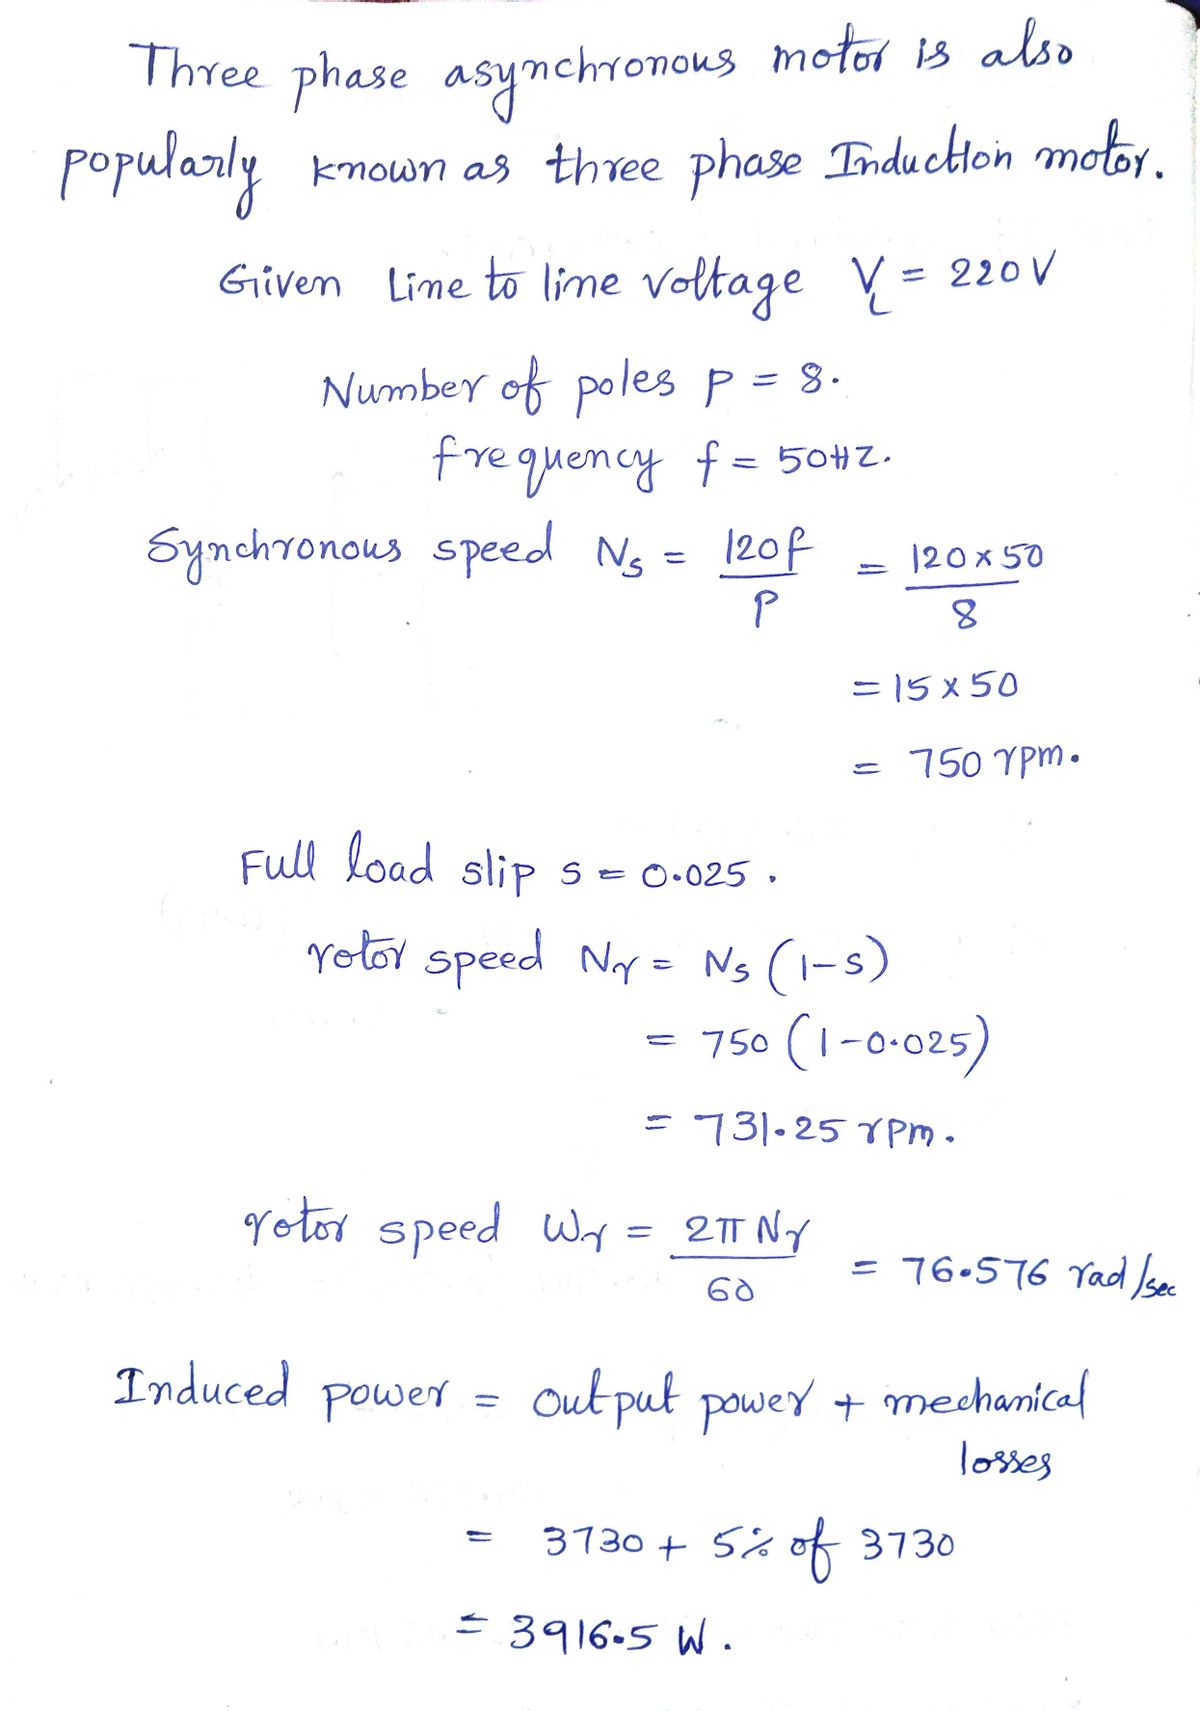 Three phase asynchronous motor is also
popularly known as three phase Induction motor.
Given Line to line voltage V_L = 220 V
Number of poles P = 8.
frequency f = 50HZ.
Synchronous speed N_s = 120f / P = 120 × 50 / 8
= 15 × 50
= 750 rpm.
Full load slip s = 0.025.
rotor speed N_r = N_s (1-s)
= 750 (1-0.025)
= 731.25 rpm.
rotor speed W_r = 2π N_r / 60 = 76.576 rad/sec
Induced power = output power + mechanical
losses
= 3730 + 5% of 3730
= 3916.5 W.